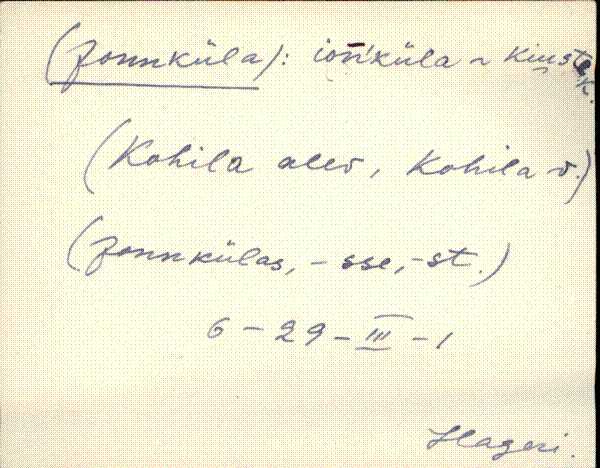 (Jonnküla): ion'küla ~ Kiuste k.
(Kohila alev, Kohila v.)
(Jonnkülas, -sse, -st.)
6 - 29 - III - 1
Hageri.